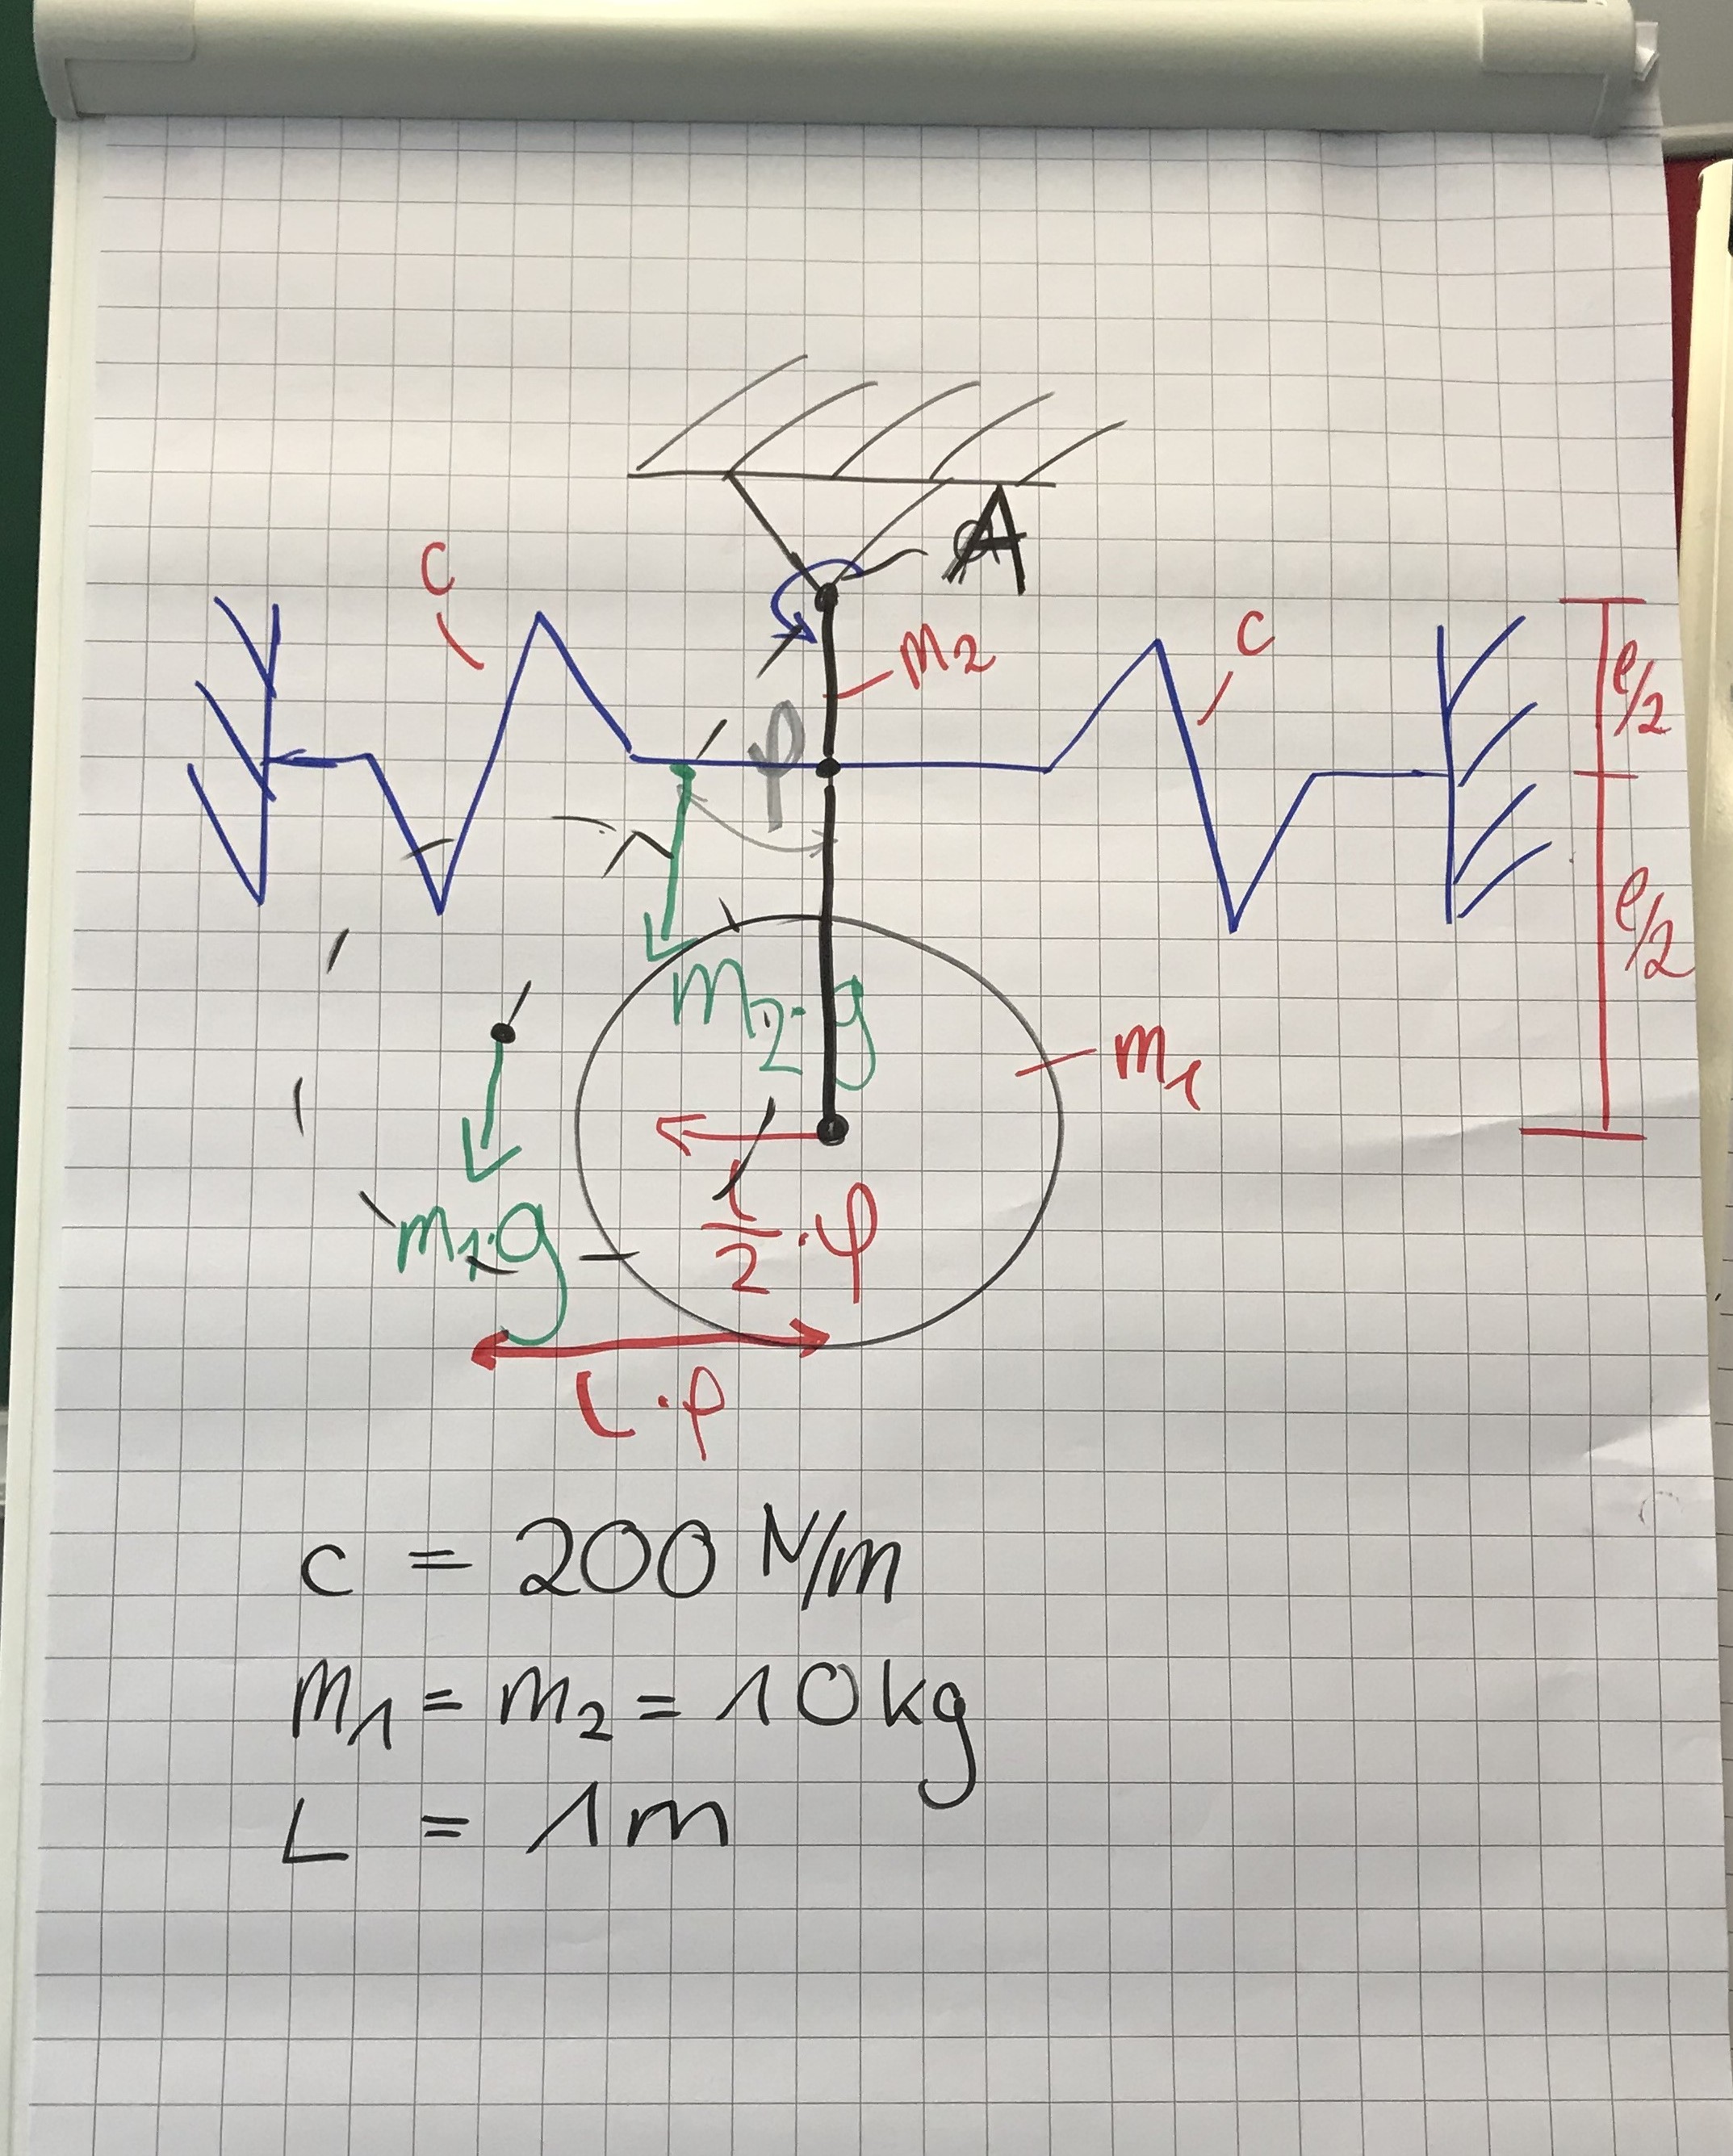 A
c
m2
c
l/2
φ
l/2
m2·g
m1
m1·g
l/2 ·φ
l·φ
c = 200 N/m
m1 = m2 = 10kg
L = 1m